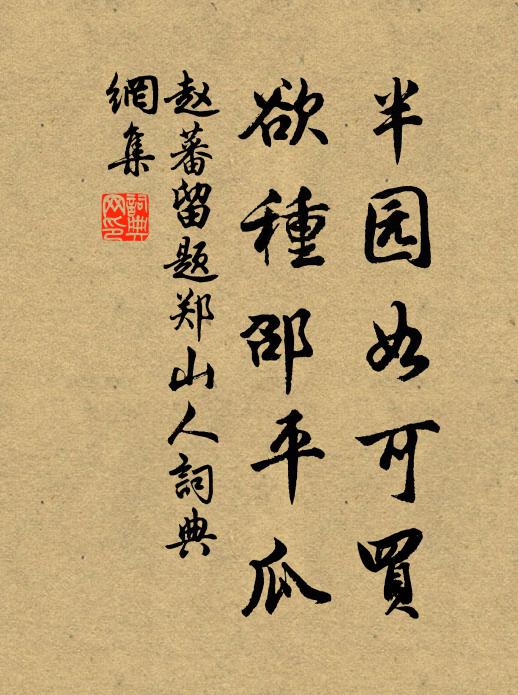 半园如可買
欲種邵平瓜
赵蕃留题郑山人詞典
網集
詞典网印